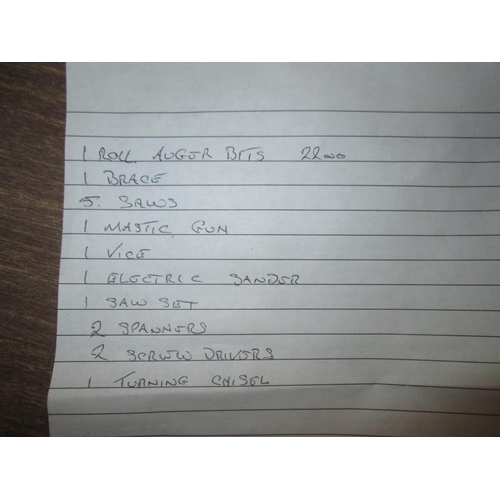 1 ROLL AUGER BITS 22no
1 BRACE
5. SAWS
1 MASTIC GUN
1 VICE
1 ELECTRIC SANDER
1 SAW SET
2 SPANNERS
2 SCREW DRIVERS
1 TURNING CHISEL